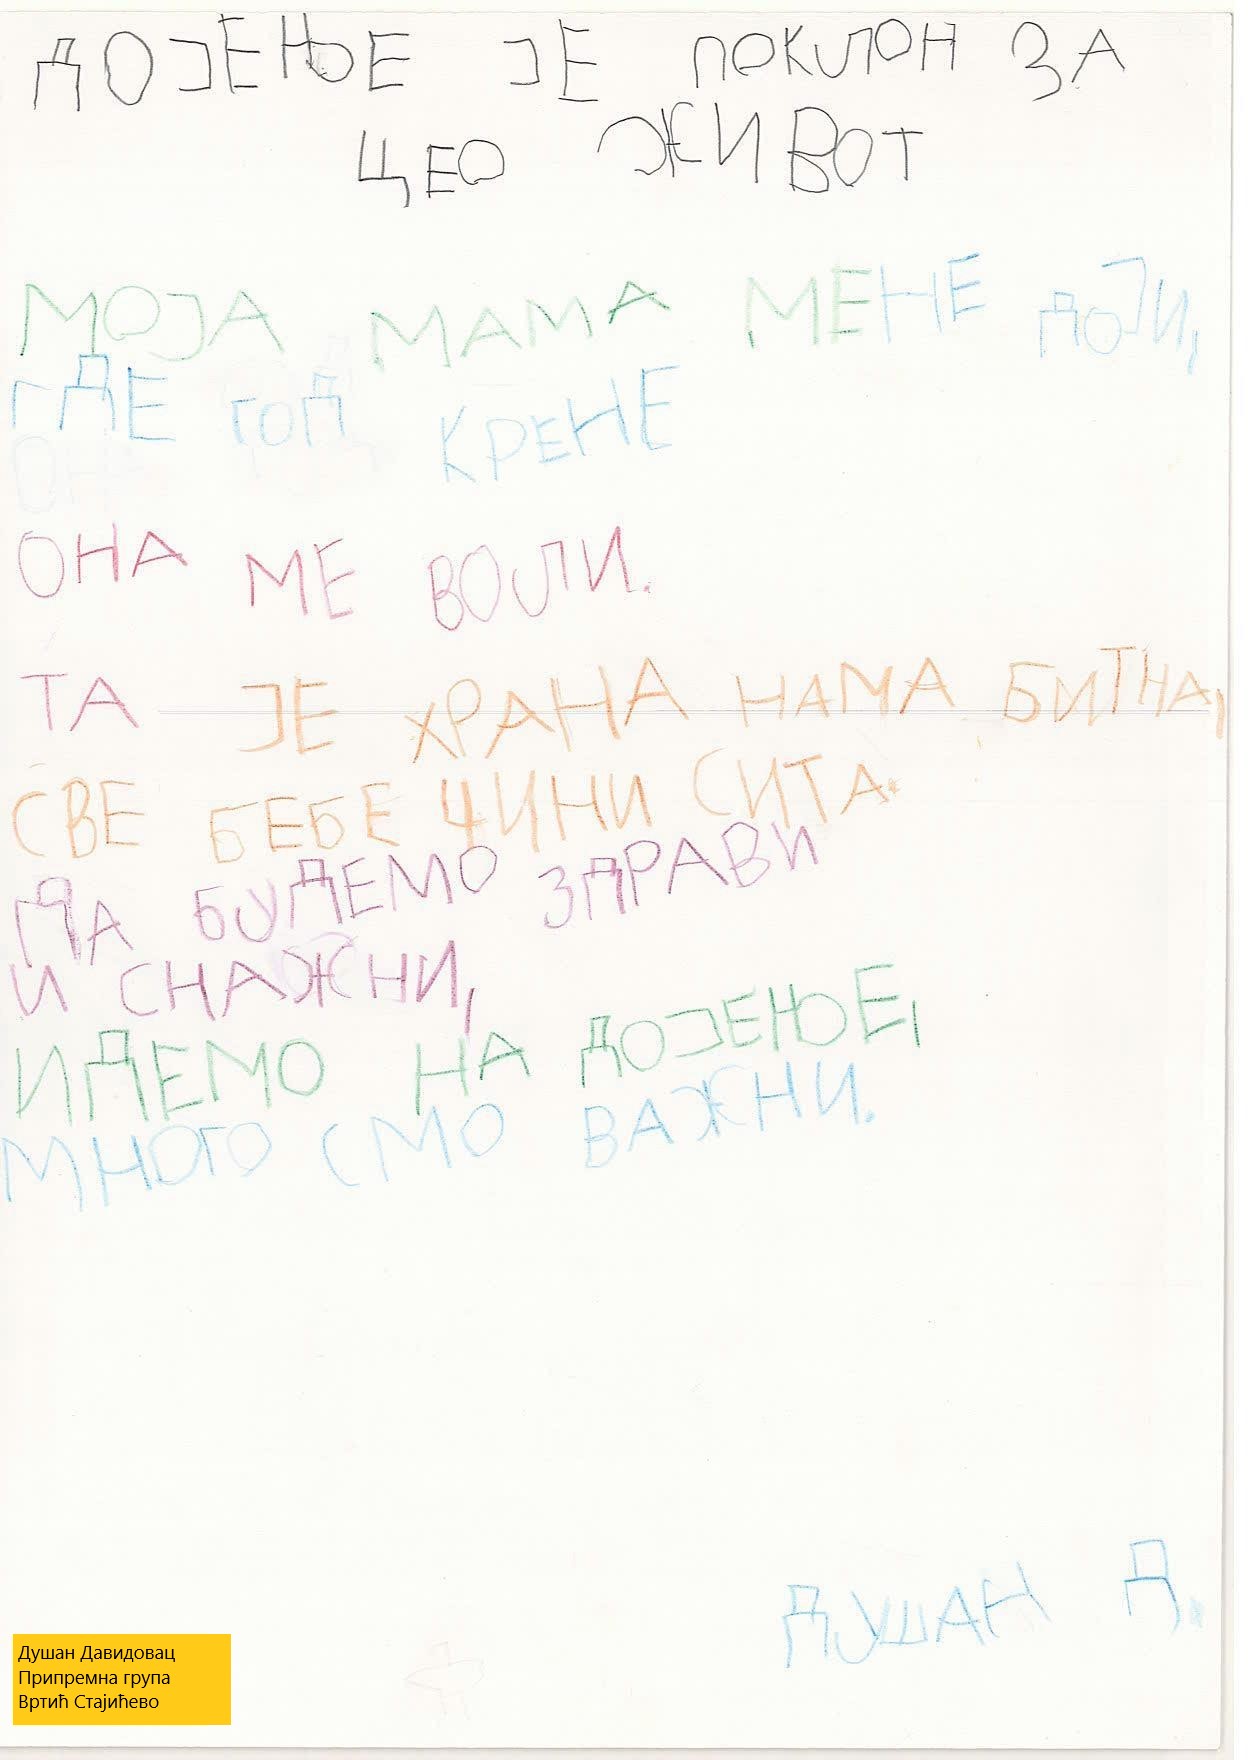 ДОЈЕЊЕ ЈЕ ПОКЛОН ЗА
ЦЕО ЖИВОТ
МОЈА МАМА МЕНЕ ДОЈИ,
ГДЕ ГОД КРЕНЕ
ОНА МЕ ВОЛИ.
ТА ЈЕ ХРАНА НАМА БИТНА,
СВЕ БЕБЕ ЧИНИ СИТА.
ДА БУДЕМО ЗДРАВИ
И СНАЖНИ,
ИДЕМО НА ДОЈЕЊЕ,
МНОГО СМО ВАЖНИ.
ДУШАН Д.
Душан Давидовац
Припремна група
Вртић Стајићево